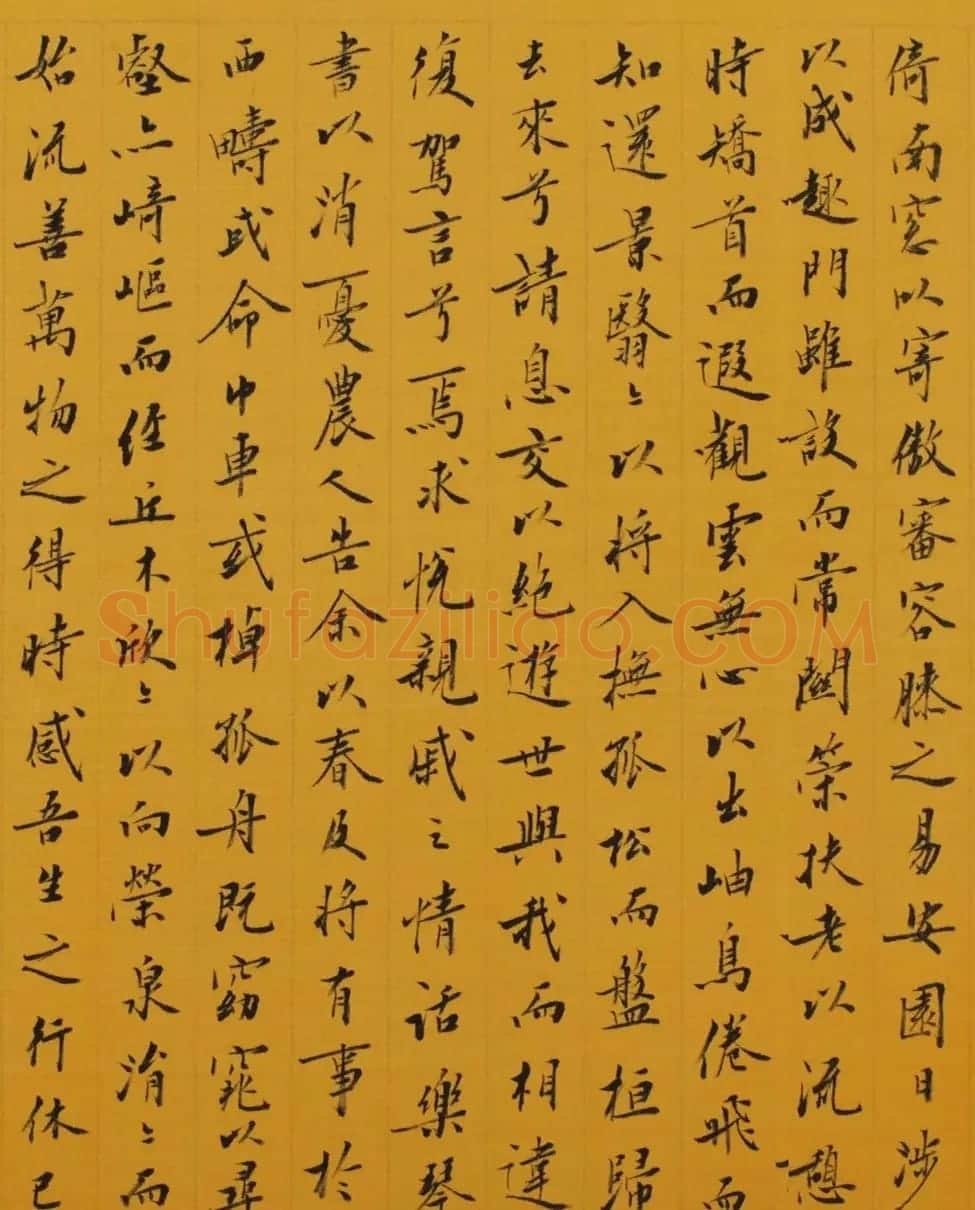 倚南窓以寄傲審容膝之易安園日涉
以成趣門雖設而常關策扶老以流憩
時矯首而遐觀雲無心以出岫鳥倦飛而
知還景翳〻以將入撫孤松而盤桓歸
去來兮請息交以絕遊世與我而相違
復駕言兮焉求悅親戚之情話樂琴
書以消憂農人告余以春及將有事於
西疇或命巾車或棹孤舟既窈窕以尋
壑亦崎嶇而經丘木欣〻以向榮泉涓〻而
始流善萬物之得時感吾生之行休已
Shufaziliao.COM